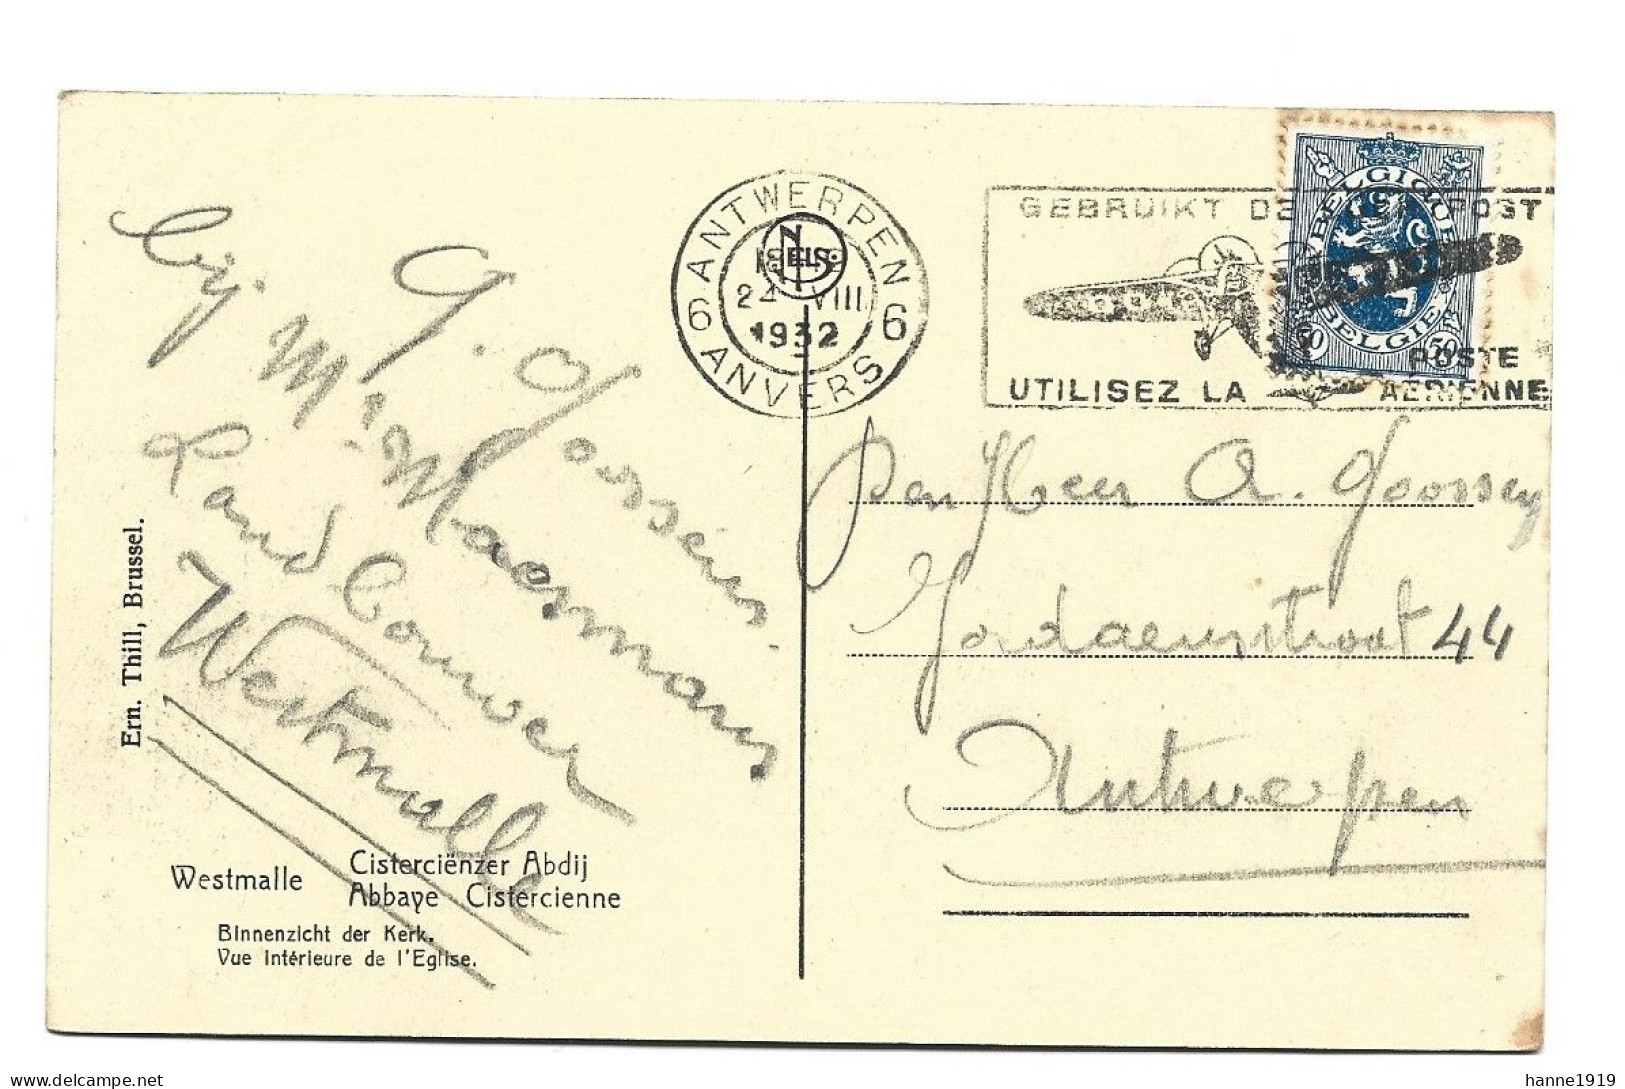 G. Goossens
bij Mr Maesmans
Landbouwer
Westmalle
Ern. Thill, Brussel.
Westmalle
Cisterciënzer Abdij
Abbaye Cistercienne
Binnenzicht der Kerk.
Vue Intérieure de l'Eglise.
ANTWERPEN
NELS
24 VIII
1932
6 6
ANVERS
GEBRUIKT DE POST
UTILISEZ LA POSTE AERIENNE
BELGIQUE
BELGIE
50 50
Den Heer A. Goossens
Jordaenstraat 44
Antwerpen
hanne1919